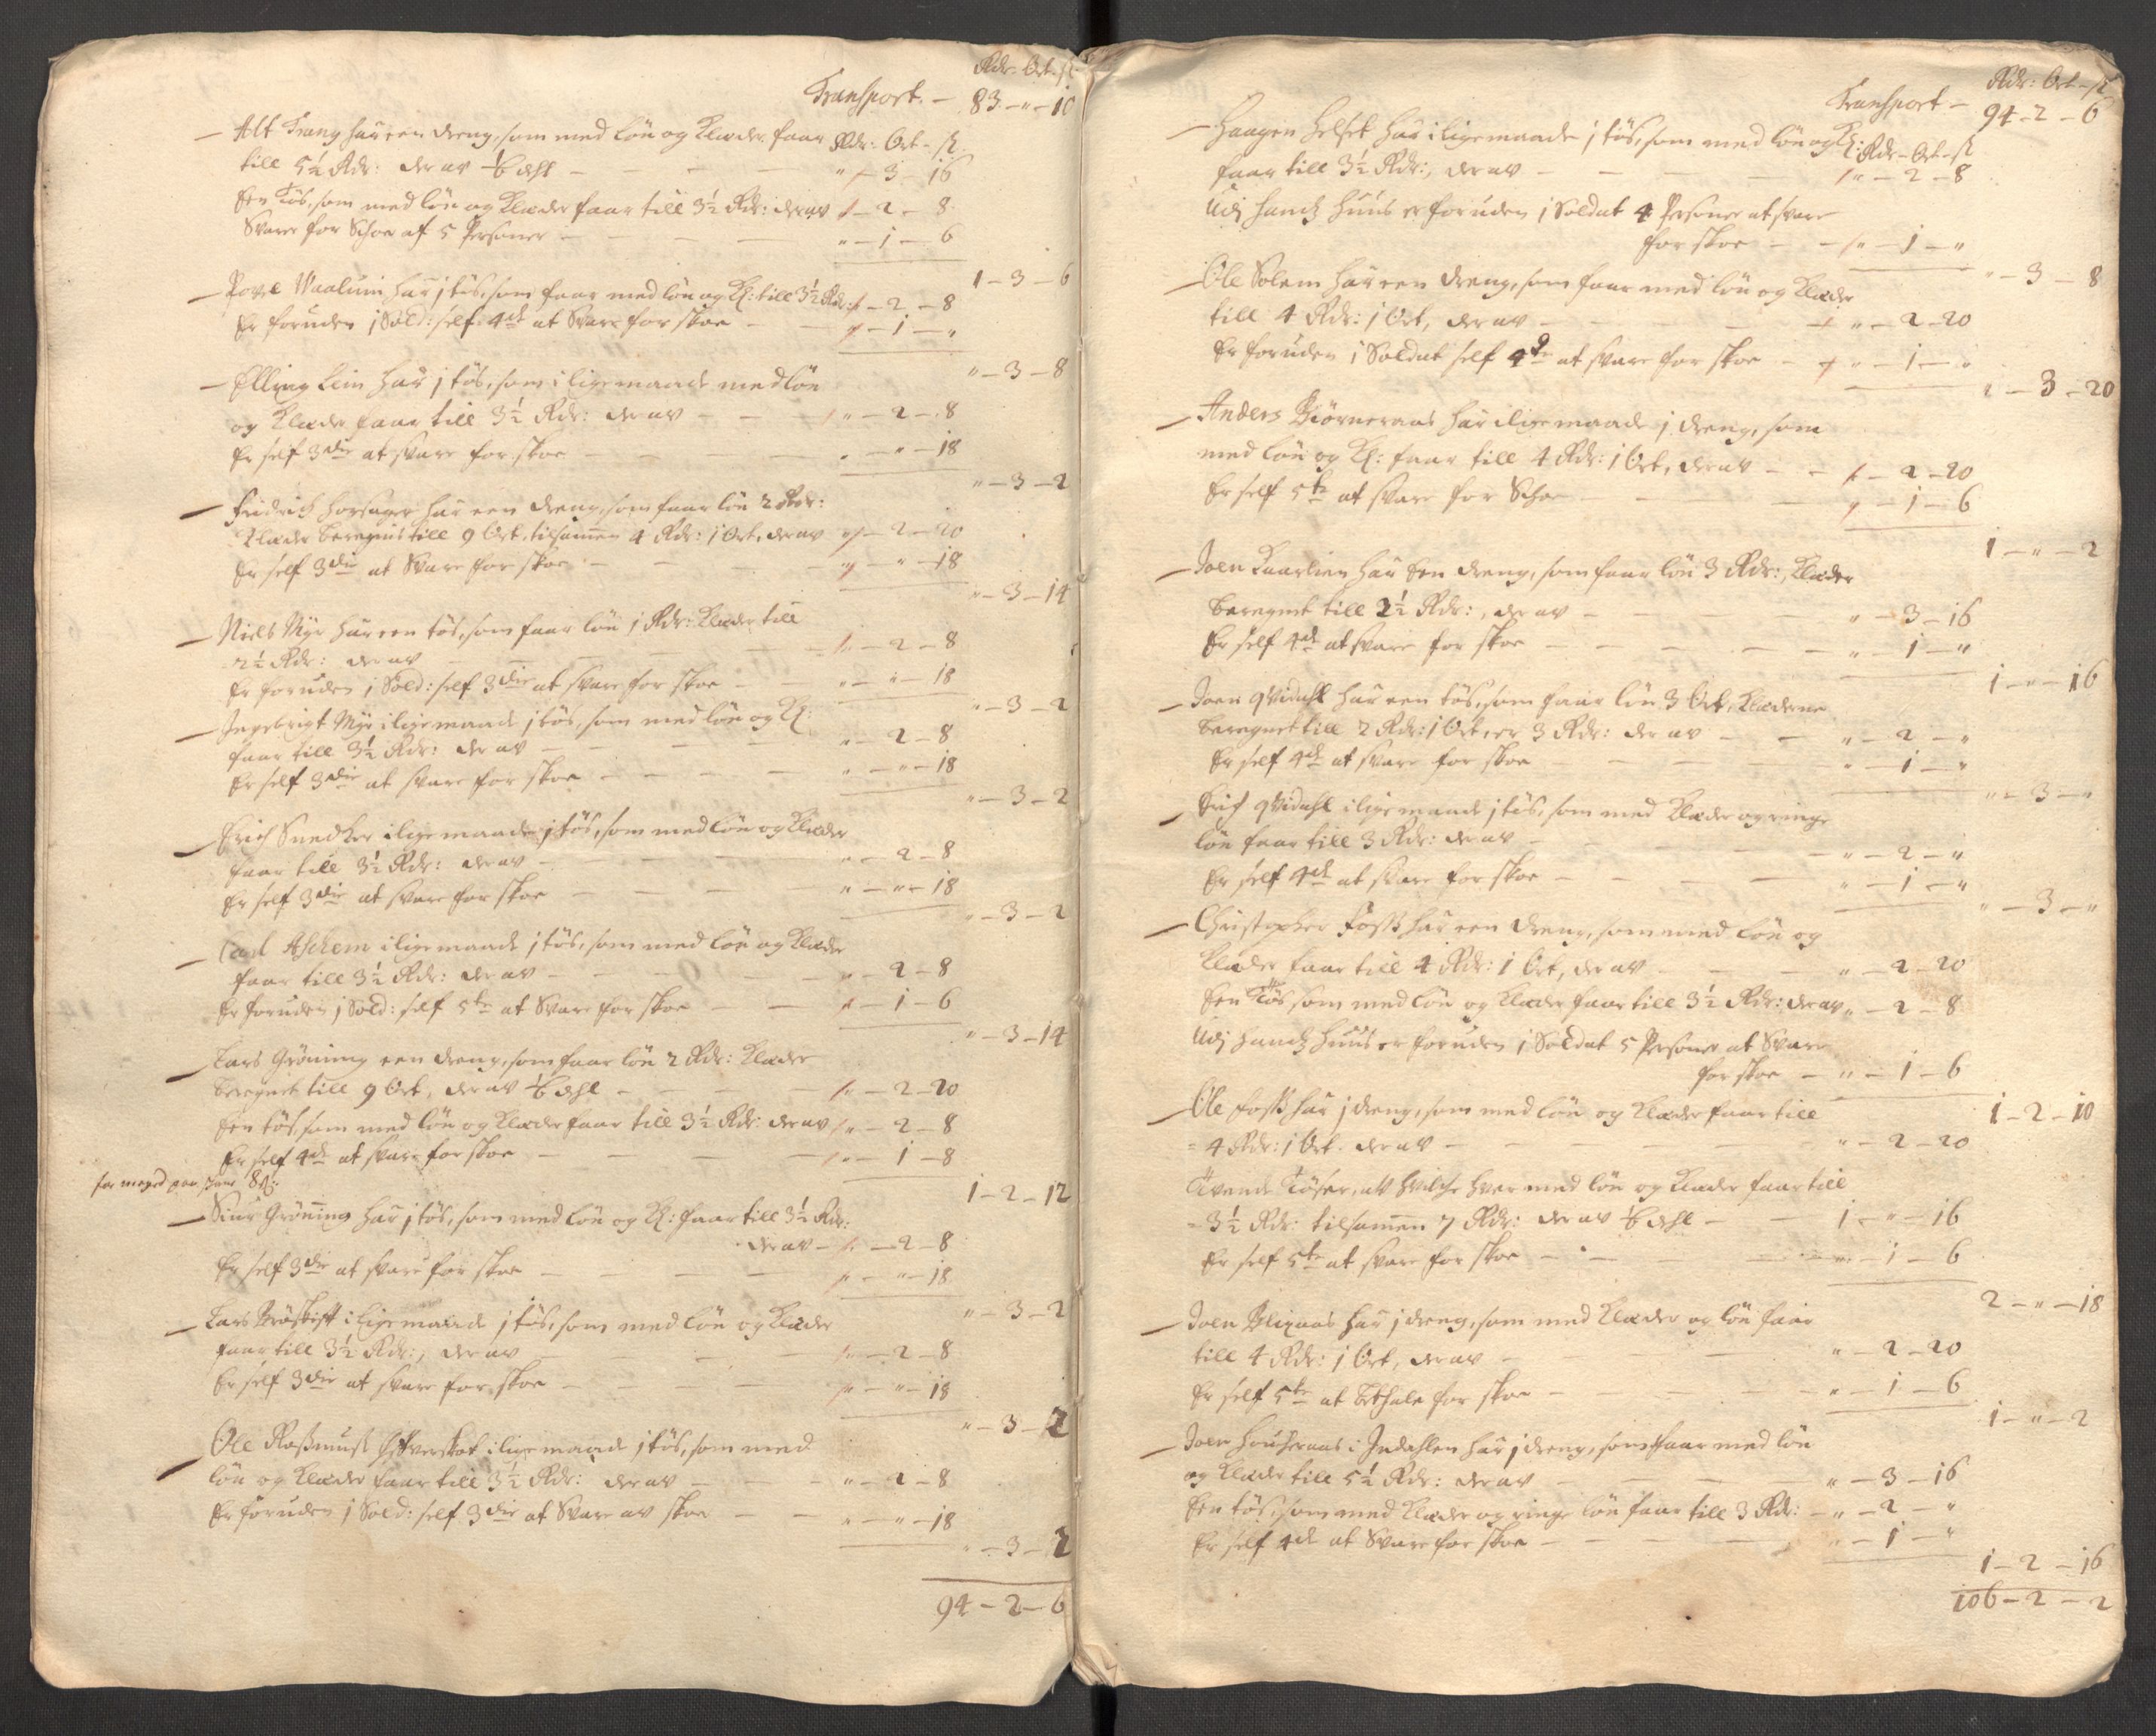 Rdr: Ort - ß
Transport. - 83 - " - 10
Alt Trang har een dreng, som med løn og Klæder faar Rdr: Ort - ß
till 5½ Rdr: der av - " - 3 - 16
Een Tøs, som med løn og Klæder faar till 3½ Rdr: der av - 2 - 8
Svare for Schoe af 5 Personer - " - 1 - 6
1 - 3 - 6
Povel har j tøs, som faar med løn og Kl: till 3½ Rdr: - 2 - 8
Er foruden j Sold: self 4de at Svare for skoe - 1 - "
" - 3 - 8
Elling Lein har j tøs, som i lige maade med løn
og Klæder faar till 3½ Rdr: der av - " - 2 - 8
Er self 3die at svare for skoe - " - 18
" - 3 - 2
Fridrich Horsager har een dreng, som faar løn 2 Rdr:
Klæder beregnis till 9 Ort, tilsamen 4 Rdr: j Ort, der av - 2 - 20
Er self 3die at Svare for skoe - " - 18
" - 3 - 14
Niels Myr har een tøs, som faar løn j Rdr: Klæder till
2½ Rdr: der av - 2 - 8
Er foruden j Sold: self 3die at svare for skoe - " - " - 18
" - 3 - 2
Ingebrigt Myr i lige maade j tøs, som med løn og Kl:
faar till 3½ Rdr: der av - " - 2 - 8
Er self 3die at svare for skoe - " - " - 18
" - 3 - 2
Erich Snedker i lige maade j tøs, som med løn og Klæder
faar till 3½ Rdr: der av - " - 2 - 8
Er self 3die at svare for skoe - " - " - 18
" - 3 - 2
Carl Aschem i lige maade j tøs, som med løn og Klæder
faar till 3½ Rdr: der av - " - 2 - 8
Er foruden j Sold: self 5te at Svare for skoe - 1 - 6
" - 3 - 14
Lars Grøning een dreng, som faar løn 2 Rdr: Klæder
beregnet till 9 Ort, der av - 2 - 20
Een tøs, som med løn og Klæder faar till 3½ Rdr: der av " - 2 - 8
Er self 4de at svare for skoe - " - 1 - 8
for meget 8 ß:
1 - 2 - 12
Siur Grøning har j tøs, som med løn og Kl: faar till 3½ Rdr:
der av - 2 - 8
Er self 3die at svare for skoe - " - 18
" - 3 - 2
Lars i lige maade j tøs, som med løn og Klæder
faar till 3½ Rdr:, der av - 2 - 8
Er self 3die at svare for skoe - " - 18
" - 3 - 2
Ole Rasmuss i lige maade j tøs, som med
løn og Klæder faar till 3½ Rdr: der av - " - 2 - 8
Er foruden j Sold: self 3die at Svare av skoe - " - " - 18
" - 3 - 2
94 - 2 - 6
Rdr: Ort - ß
Transport - 94 - 2 - 6
Haagen Helset har i lige maade j tøs, som med løn og Kl: Rdr - Ort - ß
faar till 3½ Rdr:, der av - " - 2 - 8
Udj hands Huus er foruden j Soldat 4 Personer at svare
for skoe - " - 1 - "
" - 3 - 8
Ole Solem har een dreng, som faar med løn og Klæder
till 4 Rdr: j Ort, der av - " - 2 - 20
Er foruden j Soldat self 4de at svare for skoe - " - 1 - "
" - 3 - 20
Anders Biørneraas har i lige maade j dreng, som
med løn og Kl: faar till 4 Rdr: j Ort, der av - 2 - 20
Er self 5te at svare for Schoe - 1 - 6
1 - " - 2
Joen Kaarlien har een dreng, som faar løn 3 Rdr:, Klæder
beregnet till 2½ Rdr:, der av - " - 3 - 16
Er self 4de at svare for skoe - " - 1 - "
1 - " - 16
Joen Qvidahl har een tøs, som faar løn 3 Ort, Klæderne
beregnet till 2 Rdr: j Ort er 3 Rdr: der av - " - 2 - "
Er self 4de at svare for skoe - " - 1 - "
" - 3 - "
Erich Qvidahl i lige maade j tøs, som med Klæder og ringe
løn faar till 3 Rdr: der av - " - 2 - "
Er self 4de at svare for skoe - " - 1 - "
" - 3 - "
Christopher Foss har een dreng, som med løn og
Klæder faar till 4 Rdr: 1 Ort, der av - " - 2 - 20
Een Tøs som med løn og Klæder faar till 3½ Rdr: der av " - 2 - 8
Udj hands Huus er foruden j Soldat 5 Personer at Svare
for skoe - " - 1 - 6
1 - 2 - 10
Ole Foss har j dreng, som med løn og Klæder faar till
4 Rdr: j Ort. der av - " - 2 - 20
Tvende Tøser, av hvilche hver med løn og Klæder faar till
3½ Rdr: tilsamen 7 Rdr: der av - 1 - " - 16
Er self 5te at svare for skoe - " - 1 - 6
2 - " - 18
Joen har j dreng, som med Klæder og løn faar
till 4 Rdr: j Ort, der av - " - 2 - 20
Er self 5te at bethale for skoe - " - 1 - 6
1 - " - 2
Joen i Indahlen har j dreng, som faar med løn
og Klæder till 5½ Rdr: der av - " - 3 - 16
Een tøs, som med Klæder og ringe løn faar till 3 Rdr: - " - 2 - "
Er self 4de at Svare for skoe - " - 1 - "
1 - 2 - 16
106 - 2 - 2